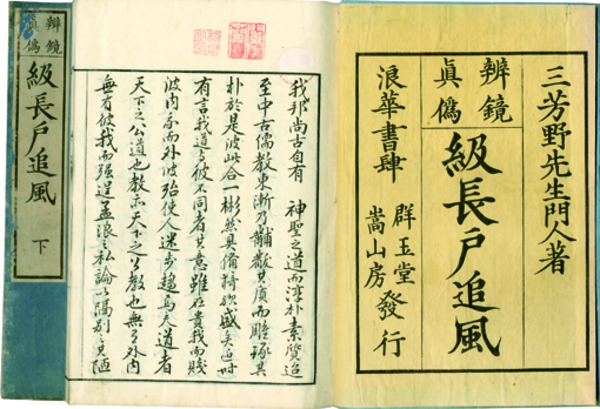 三芳野先生門人著
辨鏡
眞僞
級長戸追風
浪華書肆
群玉堂
嵩山房
發行
我邦尚古自有 神聖之道而淳朴素質迨
至中古儒教東漸乃黼黻其質而雕琢其
朴於是彼此合一彬然具備猗欤盛矣近時
有言我道与彼不同者其意雖在貴我而賤
彼内我而外彼殆使人迷步趨焉夫道者
天下之公道也教亦天下之公教也無有外内
無有彼我而强逞孟浪之私論以隔別之其陋
辨鏡
眞僞
級長戸追風
下